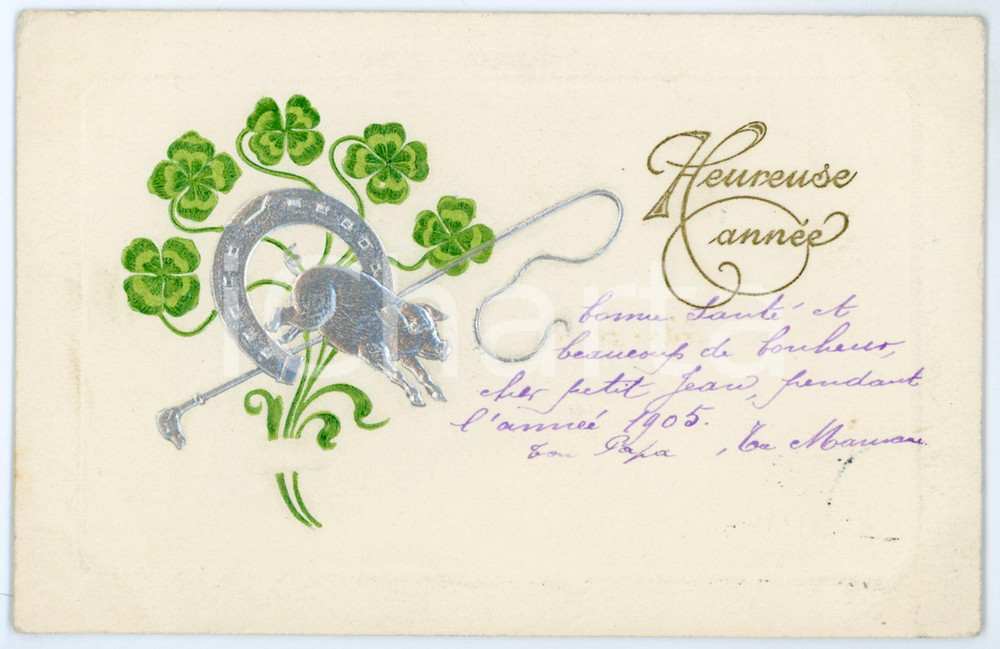 Heureuse
année
bonne santé et
beaucoup de bonheur,
cher petit Jean, pendant
l'année 1905.
ton Papa, Ta Maman